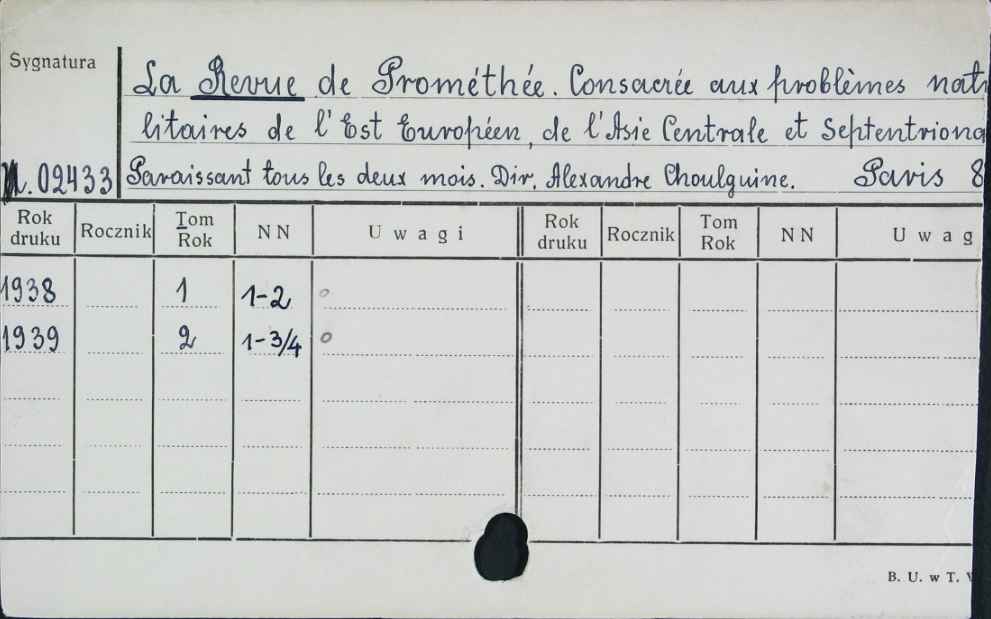 Sygnatura
La Revue de Prométhée. Consacrée aux problèmes nat
litaires de l'Est Européen, de l'Asie Centrale et Septentriona
02433 Paraissant tous les deux mois. Dir. Alexandre Choulguine. Paris 8
Rok druku Rocznik Tom Rok NN Uwagi Rok druku Rocznik Tom Rok NN Uwag
1938 1 1-2
1939 2 1-3/4
B. U. w T.